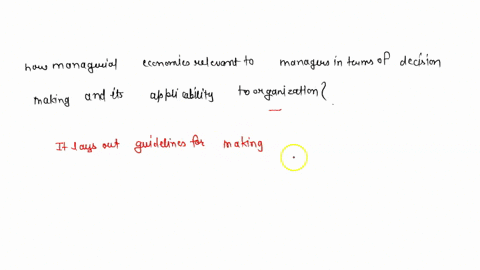 how managerial economics relevant to managers in terms of decision
making and its applicability to organization?.
It lays out guidelines for making